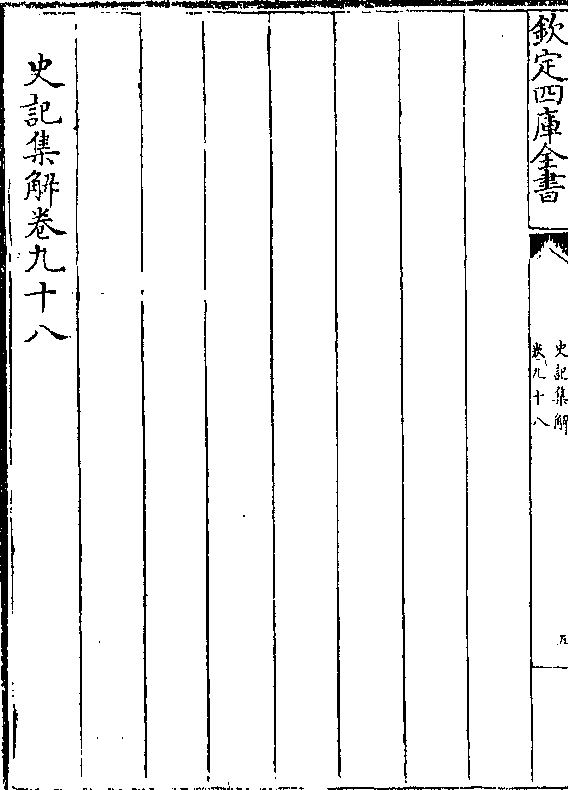 欽定四庫全書
史記集解
卷九十八
五
史記集解卷九十八